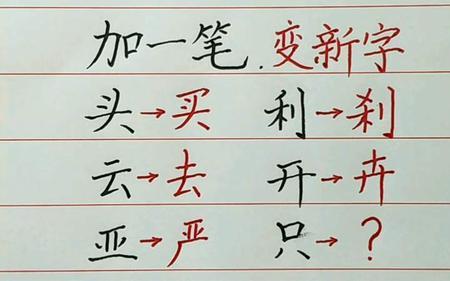 加一笔.变新字
头→买 利→刹
云→去 开→卉
亚→严 只→?